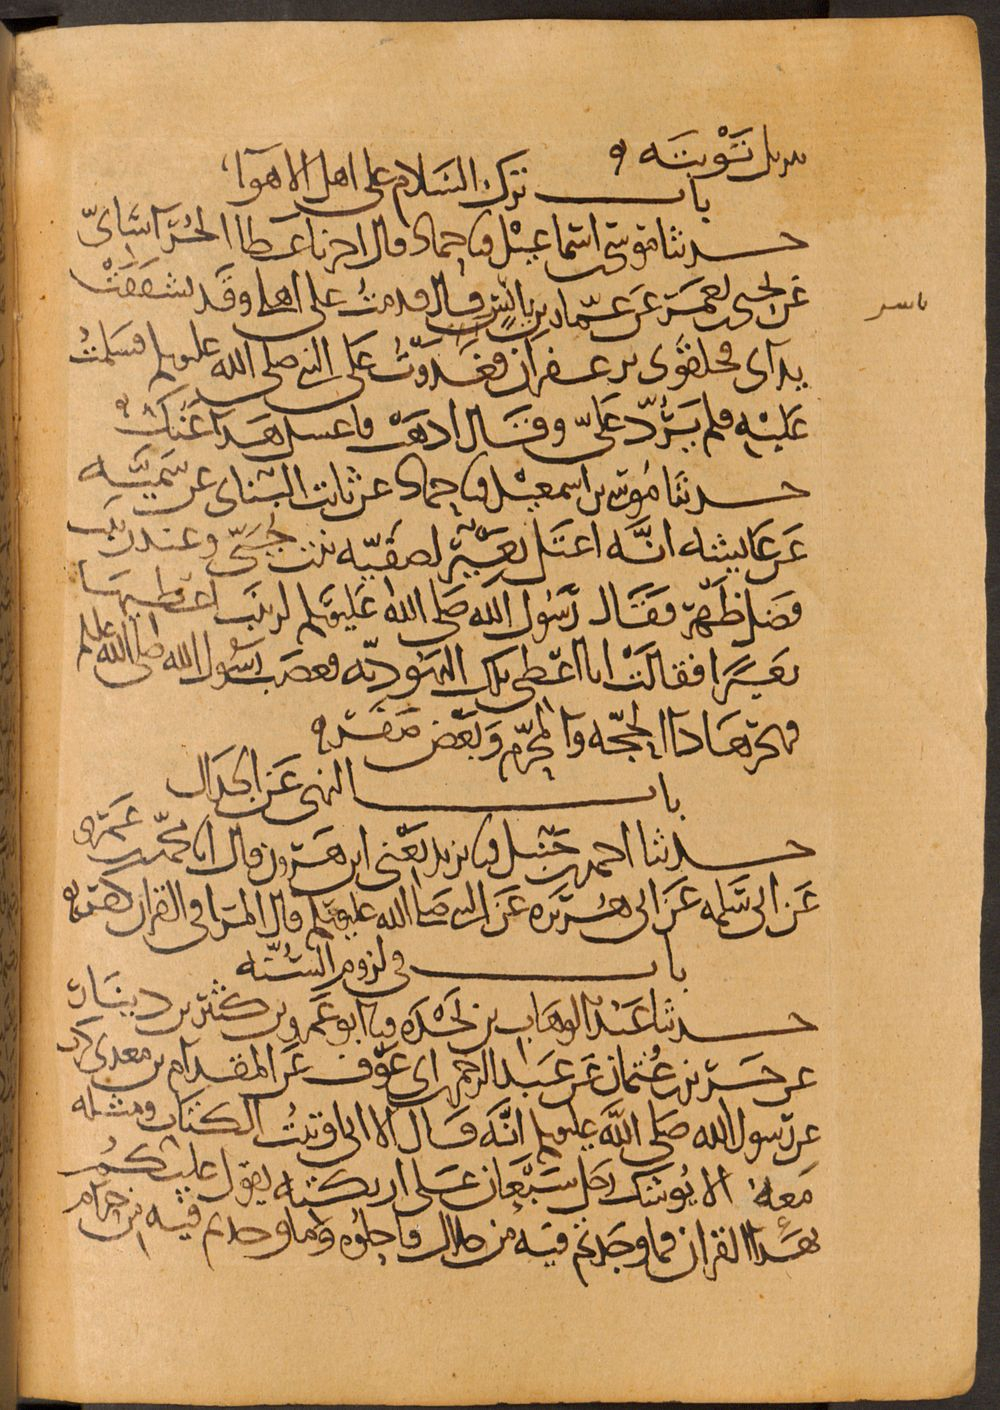 تنزيل توبته ه
باب ترك السلام على اهل الاهوآء
حدثنا موسى اسماعيل نا حماد قال اخبرنا عطا الخراسانى
عن يحيى يعمر عن عمار بن ياسر قال قدمت على اهلى وقد تشققت
ياسر
يداى فخلقونى بزعفران فغدوت على النبي صلى الله عليه وسلم فسلمت
عليه فلم يرد على وقال اذهب فاغسل هذا عنك ه
حدثنا موسى بن اسمعيل نا حماد عن ثابت البنانى عن سميه
عن عائشه انه اعتل بعير لصفيه بنت حيى وعند زينب
فضل ظهر فقال رسول الله صلى الله عليه وسلم لزينب اعطيها
بعيرا فقالت انا اعطى تلك اليهوديه فغضب رسول الله صلى الله عليه وسلم
فهجرها ذا الحجه والمحرم وبعض صفر ه
باب النهى عن الجدال
حدثنا احمد حنبل نا يزيد يعنى ابن هرون قال انا محمد بن عمرو
عن ابى سلمه عن ابى هريره عن النبي صلى الله عليه وسلم قال المرا فى القران كفر ه
باب فى لزوم السنه
حدثنا عبد الوهاب بن نجده نا ابو عمرو بن كثير بن دينار
عن حريز بن عثمان عن عبد الرحمن ابى عوف عن المقدام بن معدى كرب
عن رسول الله صلى الله عليه وسلم انه قال الا انى اوتيت الكتاب ومثله
معه الا يوشك رجل شبعان على اريكته يقول عليكم
بهذا القران فما وجدتم فيه من حلال فاحلوه وما وجدتم فيه من حرام